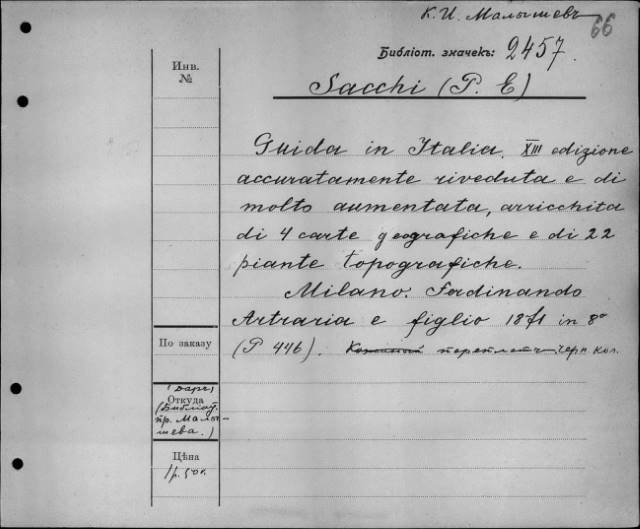 К. И. Малышевъ
66
Библіот. значекъ: 2457.
Инв.
№
Sacchi (P. E)
Guida in Italia. XIII edizione
accuratamente riveduta e di
molto aumentata, arricchita
di 4 carte geografiche e di 22
piante topografiche.
Milano. Ferdinando
Artraria e figlio 1871 in 8°
(P 446). Кожаный переплетъ черн кол.
По заказу
(Даръ,
Откуда
(Библіот.
пр. Малы-
шева.)
Цѣна
1 р. 50 к